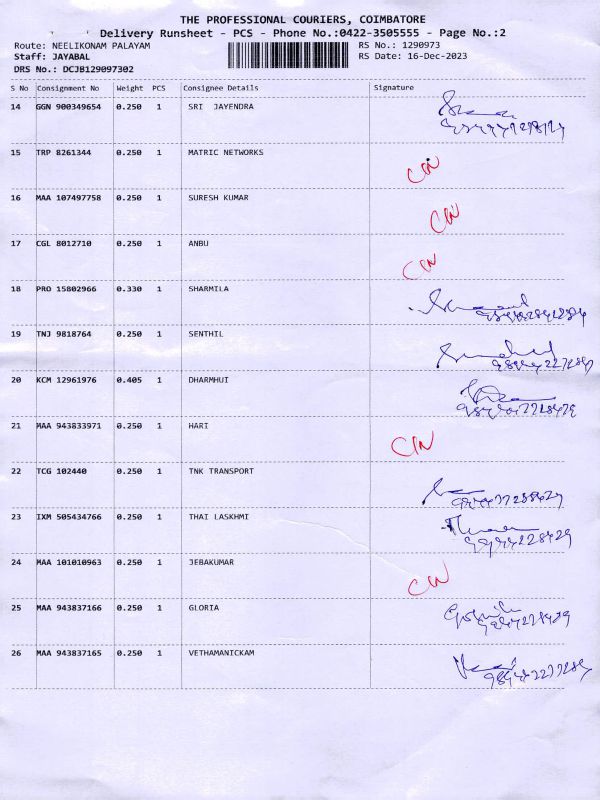 THE PROFESSIONAL COURIERS, COIMBATORE
Delivery Runsheet - PCS - Phone No.:0422-3505555 - Page No.:2
Route: NEELIKONAM PALAYAM RS No.: 1290973
Staff: JAYABAL RS Date: 16-Dec-2023
DRS No.: DCJB129097302
S No Consignment No Weight PCS Consignee Details Signature
14 GGN 900349654 0.250 1 SRI JAYENDRA
15 TRP 8261344 0.250 1 MATRIC NETWORKS
16 MAA 107497758 0.250 1 SURESH KUMAR
17 CGL 8012710 0.250 1 ANBU
18 PRO 15802966 0.330 1 SHARMILA
19 TNJ 9818764 0.250 1 SENTHIL
20 KCM 12961976 0.405 1 DHARMHUI
21 MAA 943833971 0.250 1 HARI
22 TCG 102440 0.250 1 TNK TRANSPORT
23 IXM 505434766 0.250 1 THAI LASKHMI
24 MAA 101010963 0.250 1 JEBAKUMAR
25 MAA 943837166 0.250 1 GLORIA
26 MAA 943837165 0.250 1 VETHAMANICKAM